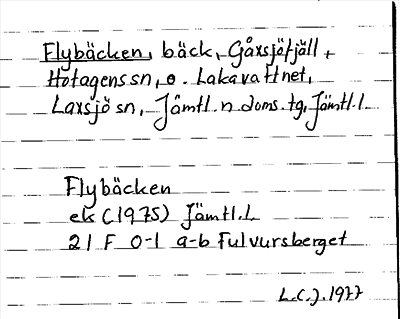 Flybäcken, bäck, Gåxsjöfjäll,
Hotagens sn, o. Lakavattnet,
Laxsjö sn, Jämtl. n. doms. tg, Jämtl. l.
Flybäcken
ek (1975) Jämtl. L
21 F 0-1 a-b Fulvursberget
L.C.J. 1977